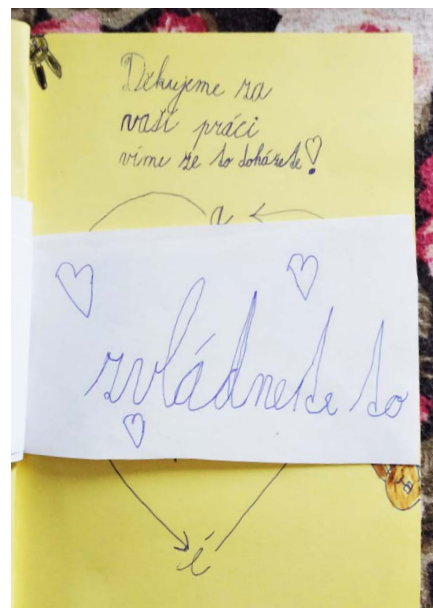 Děkujeme za
vaší práci
víme že to dokážete!
zvládnete to
í